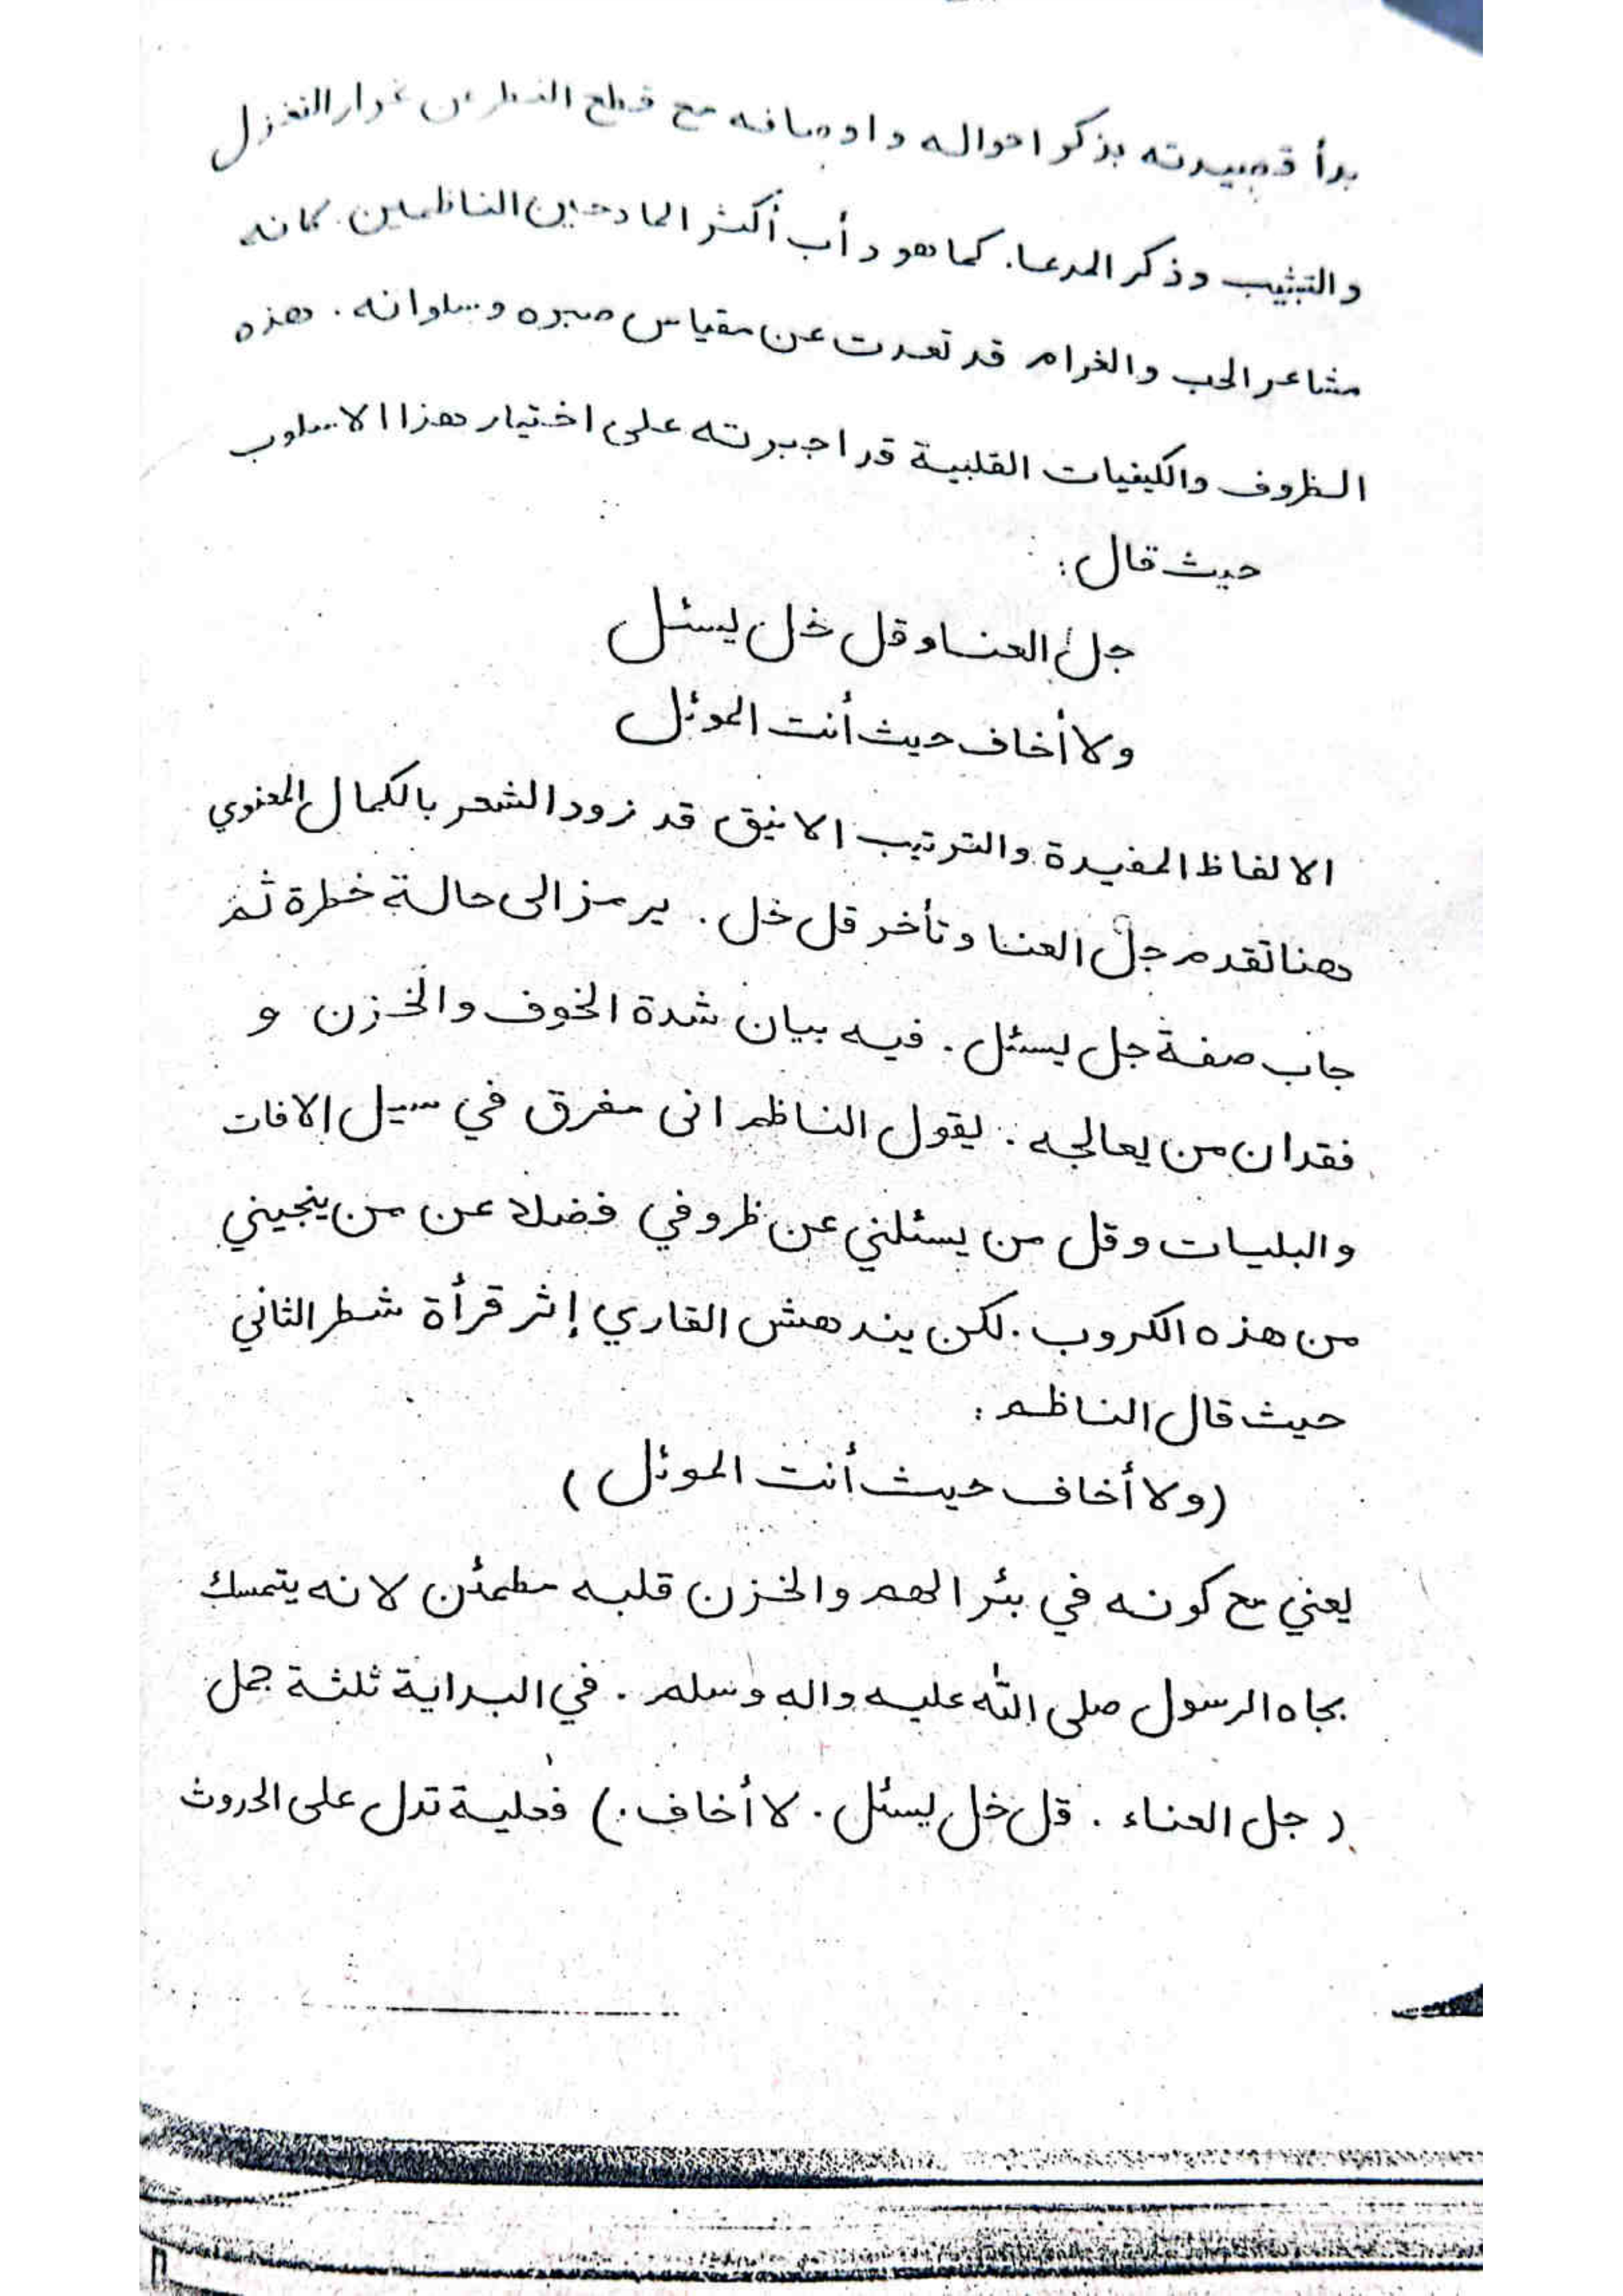 بدأ قصيدته بذكر احواله واوصافه مع قطع النظر عن غرار التغزل
والتبثيب وذكر المدعا. كما هو دأب أكثر المادحين الناظمين. كانه
مشاعر الحب والغرام قد تعدت عن مقياس صبره وسلوانه. هذه
الظروف والكيفيات القلبية قد اجبرته على اختيار هذا الاسلوب
حيث قال:
جل العنا وقل خل يسئل
ولا أخاف حيث أنت الموئل
الالفاظ المفيدة والترتيب الانيق قد زود الشعر بالكمال المعنوي
هنا تقدم جل العنا وتأخر قل خل. يرمز الى حالة خطرة ثم
جاب صفة جل يسئل. فيه بيان شدة الخوف والخزن و
فقدان من يعالجه. يقول الناظم انى مغرق في سيل الافات
والبليات وقل من يسئلني عن ظروفي فضلا عن من ينجيني
من هذه الكروب. لكن يندهش القاري إثر قرأة شطر الثاني
حيث قال الناظم:
(ولا أخاف حيث أنت الموئل)
يعني مع كونه في بئر الهم والخزن قلبه مطمئن لانه يتمسك
بجاه الرسول صلى الله عليه واله وسلم. في البداية ثلثة جمل
(جل العناء. قل خل يسئل. لا أخاف.) فعلية تدل على الحروث